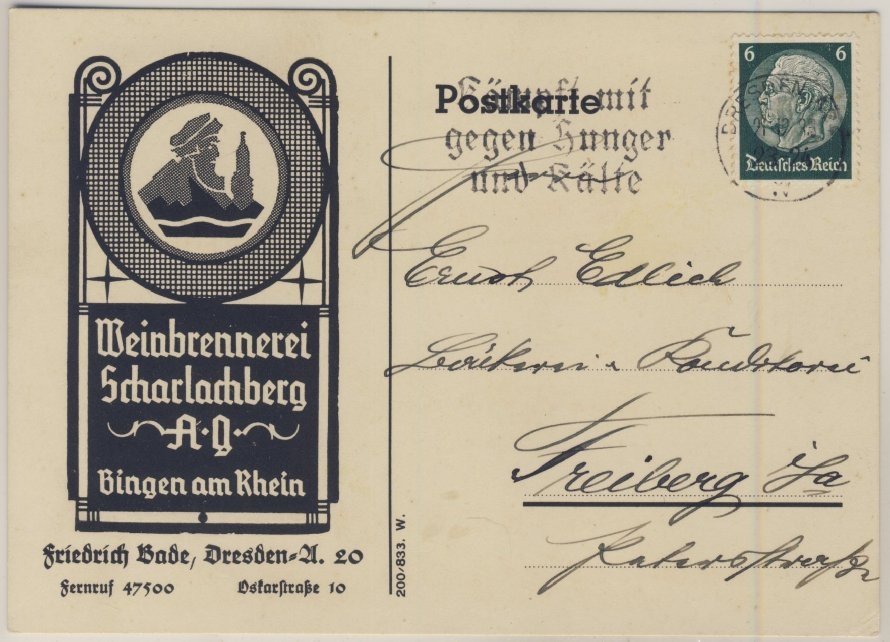 Weinbrennerei
Scharlachberg
A·G·
Bingen am Rhein
Friedrich Bade, Dresden-A. 20
Fernruf 47500 Oskarstraße 10
200/833. W.
Postkarte
Kämpft mit
gegen Hunger
und Kälte
6 6
Deutsches Reich
DRESDEN
Ernst Edlich
Bäckerei u Konditorei
Freiberg Sa
Petersstraße